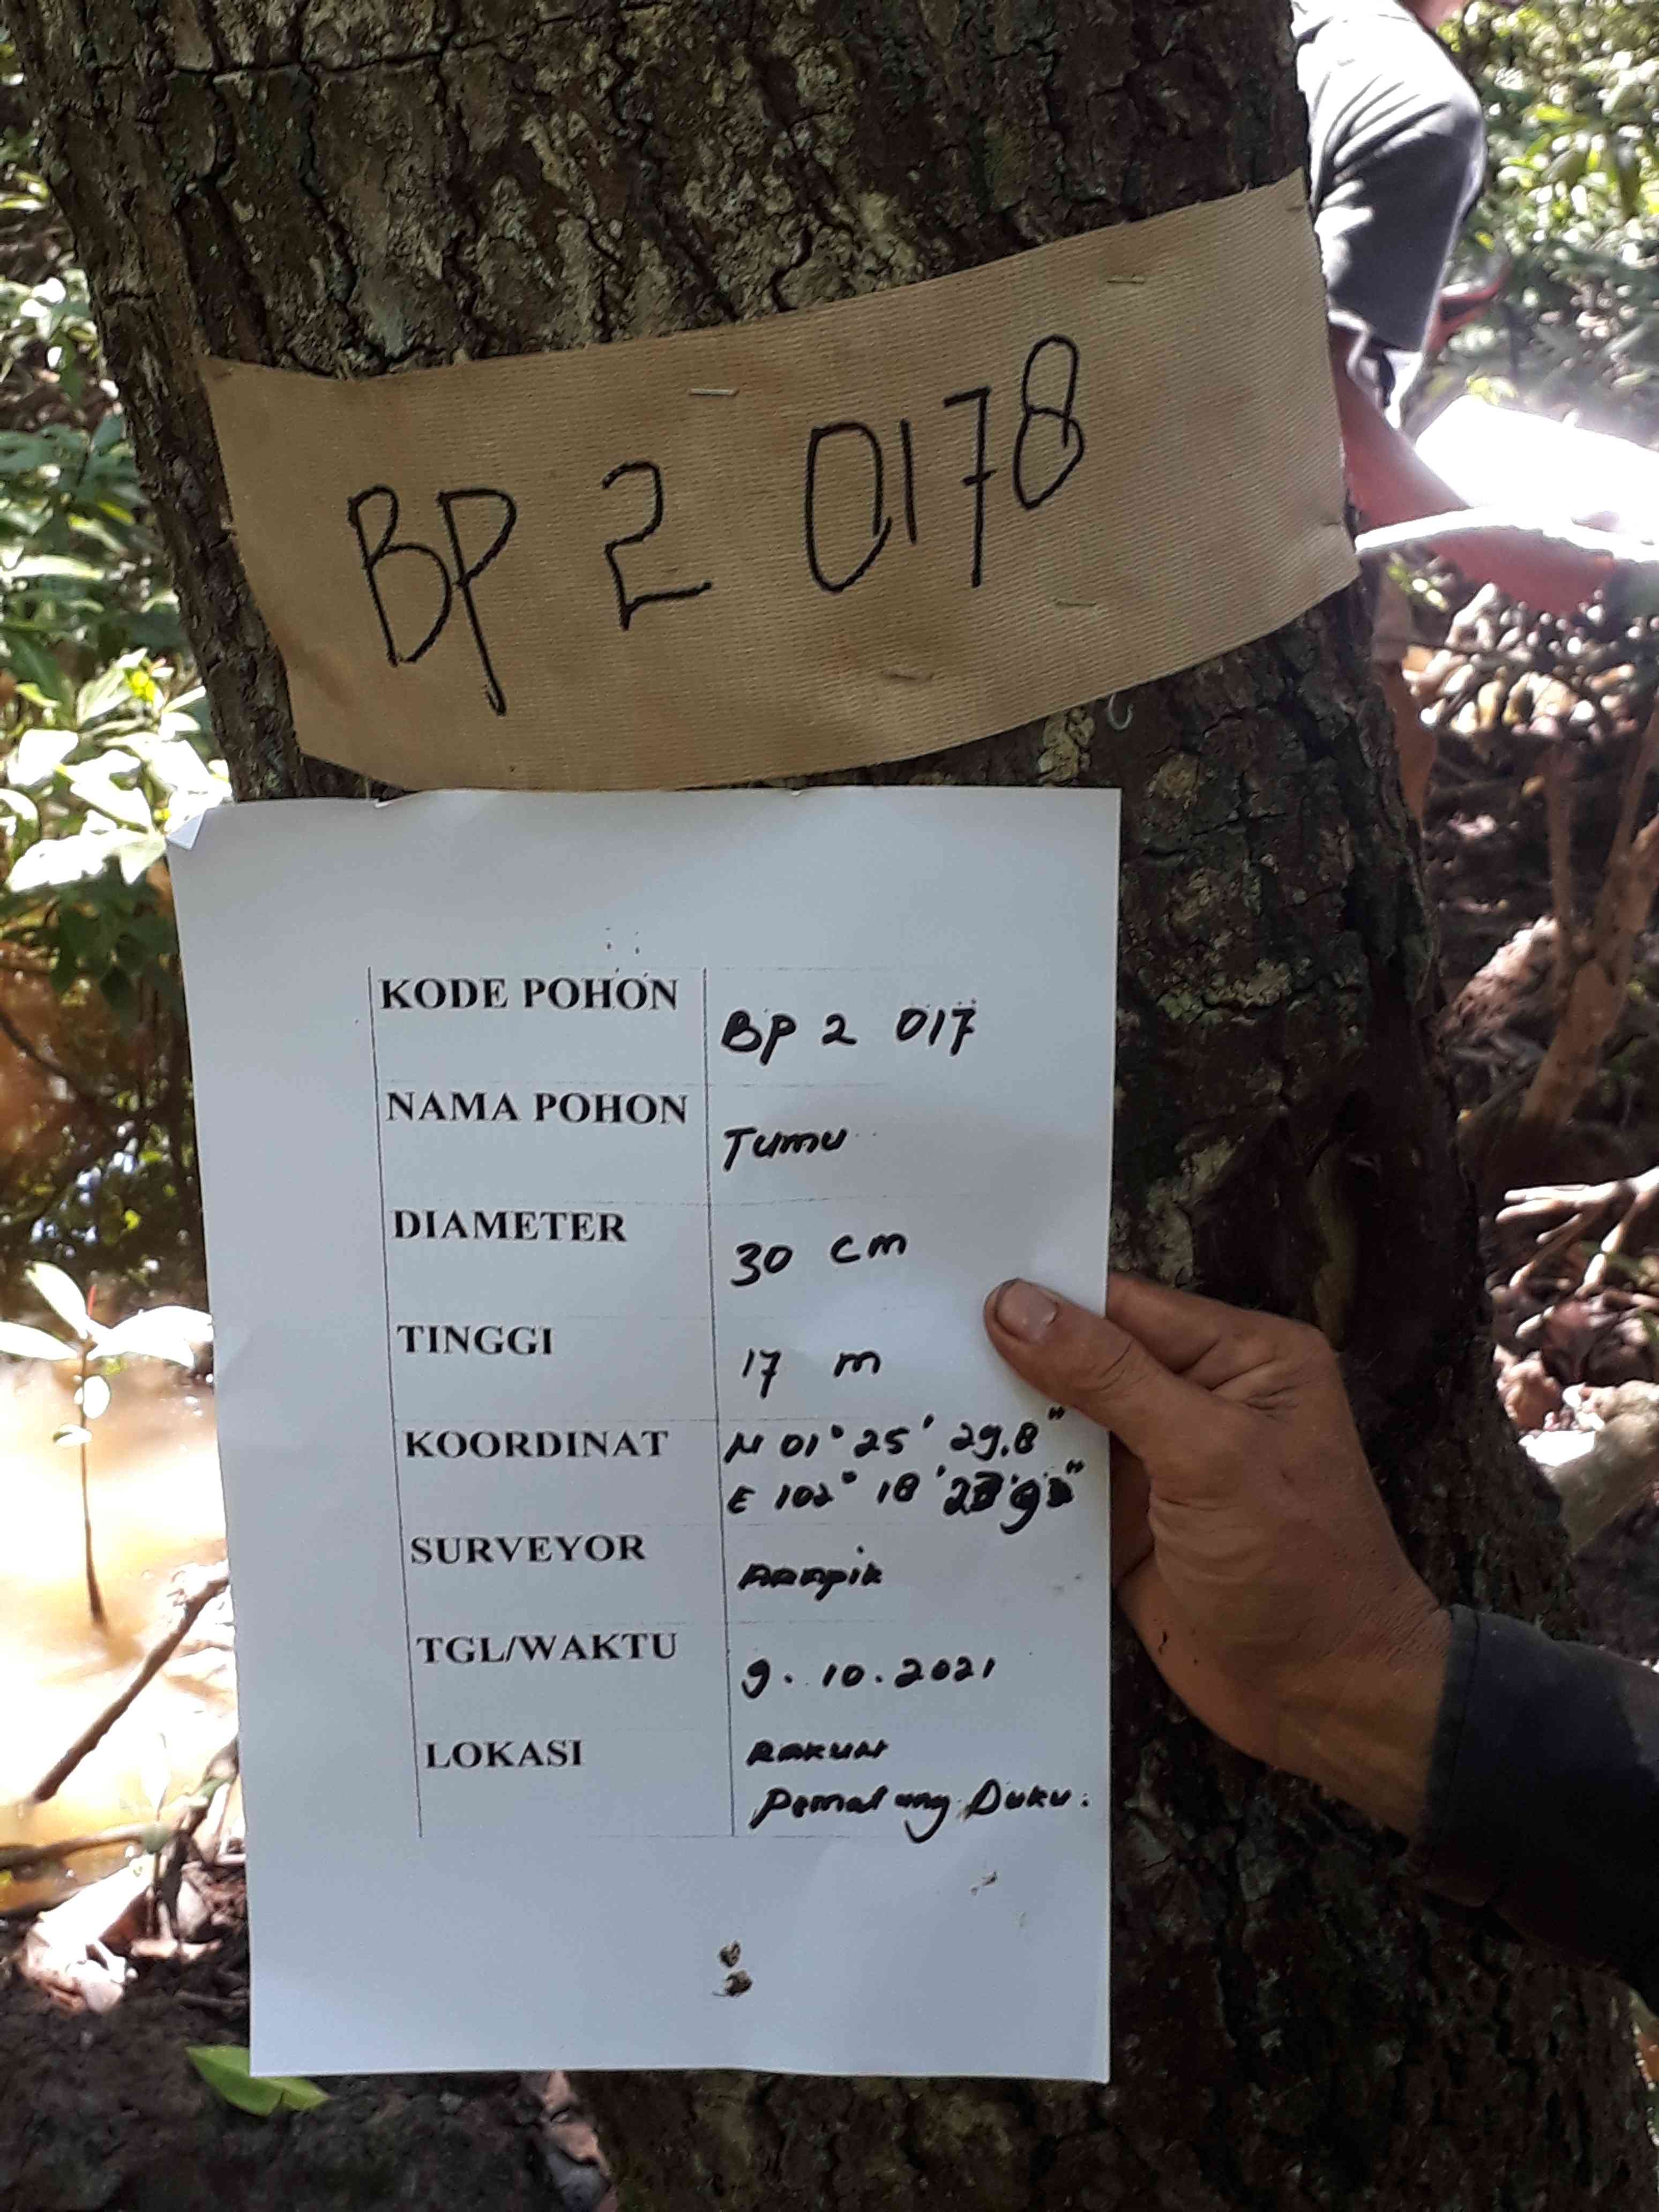 BP 2 0178
KODE POHON BP 2 017
NAMA POHON Tumu
DIAMETER 30 cm
TINGGI 17 m
KOORDINAT N 01° 25' 29,8"
E 102° 18'
SURVEYOR
TGL/WAKTU 9.10.2021
LOKASI
Pematang Duku.